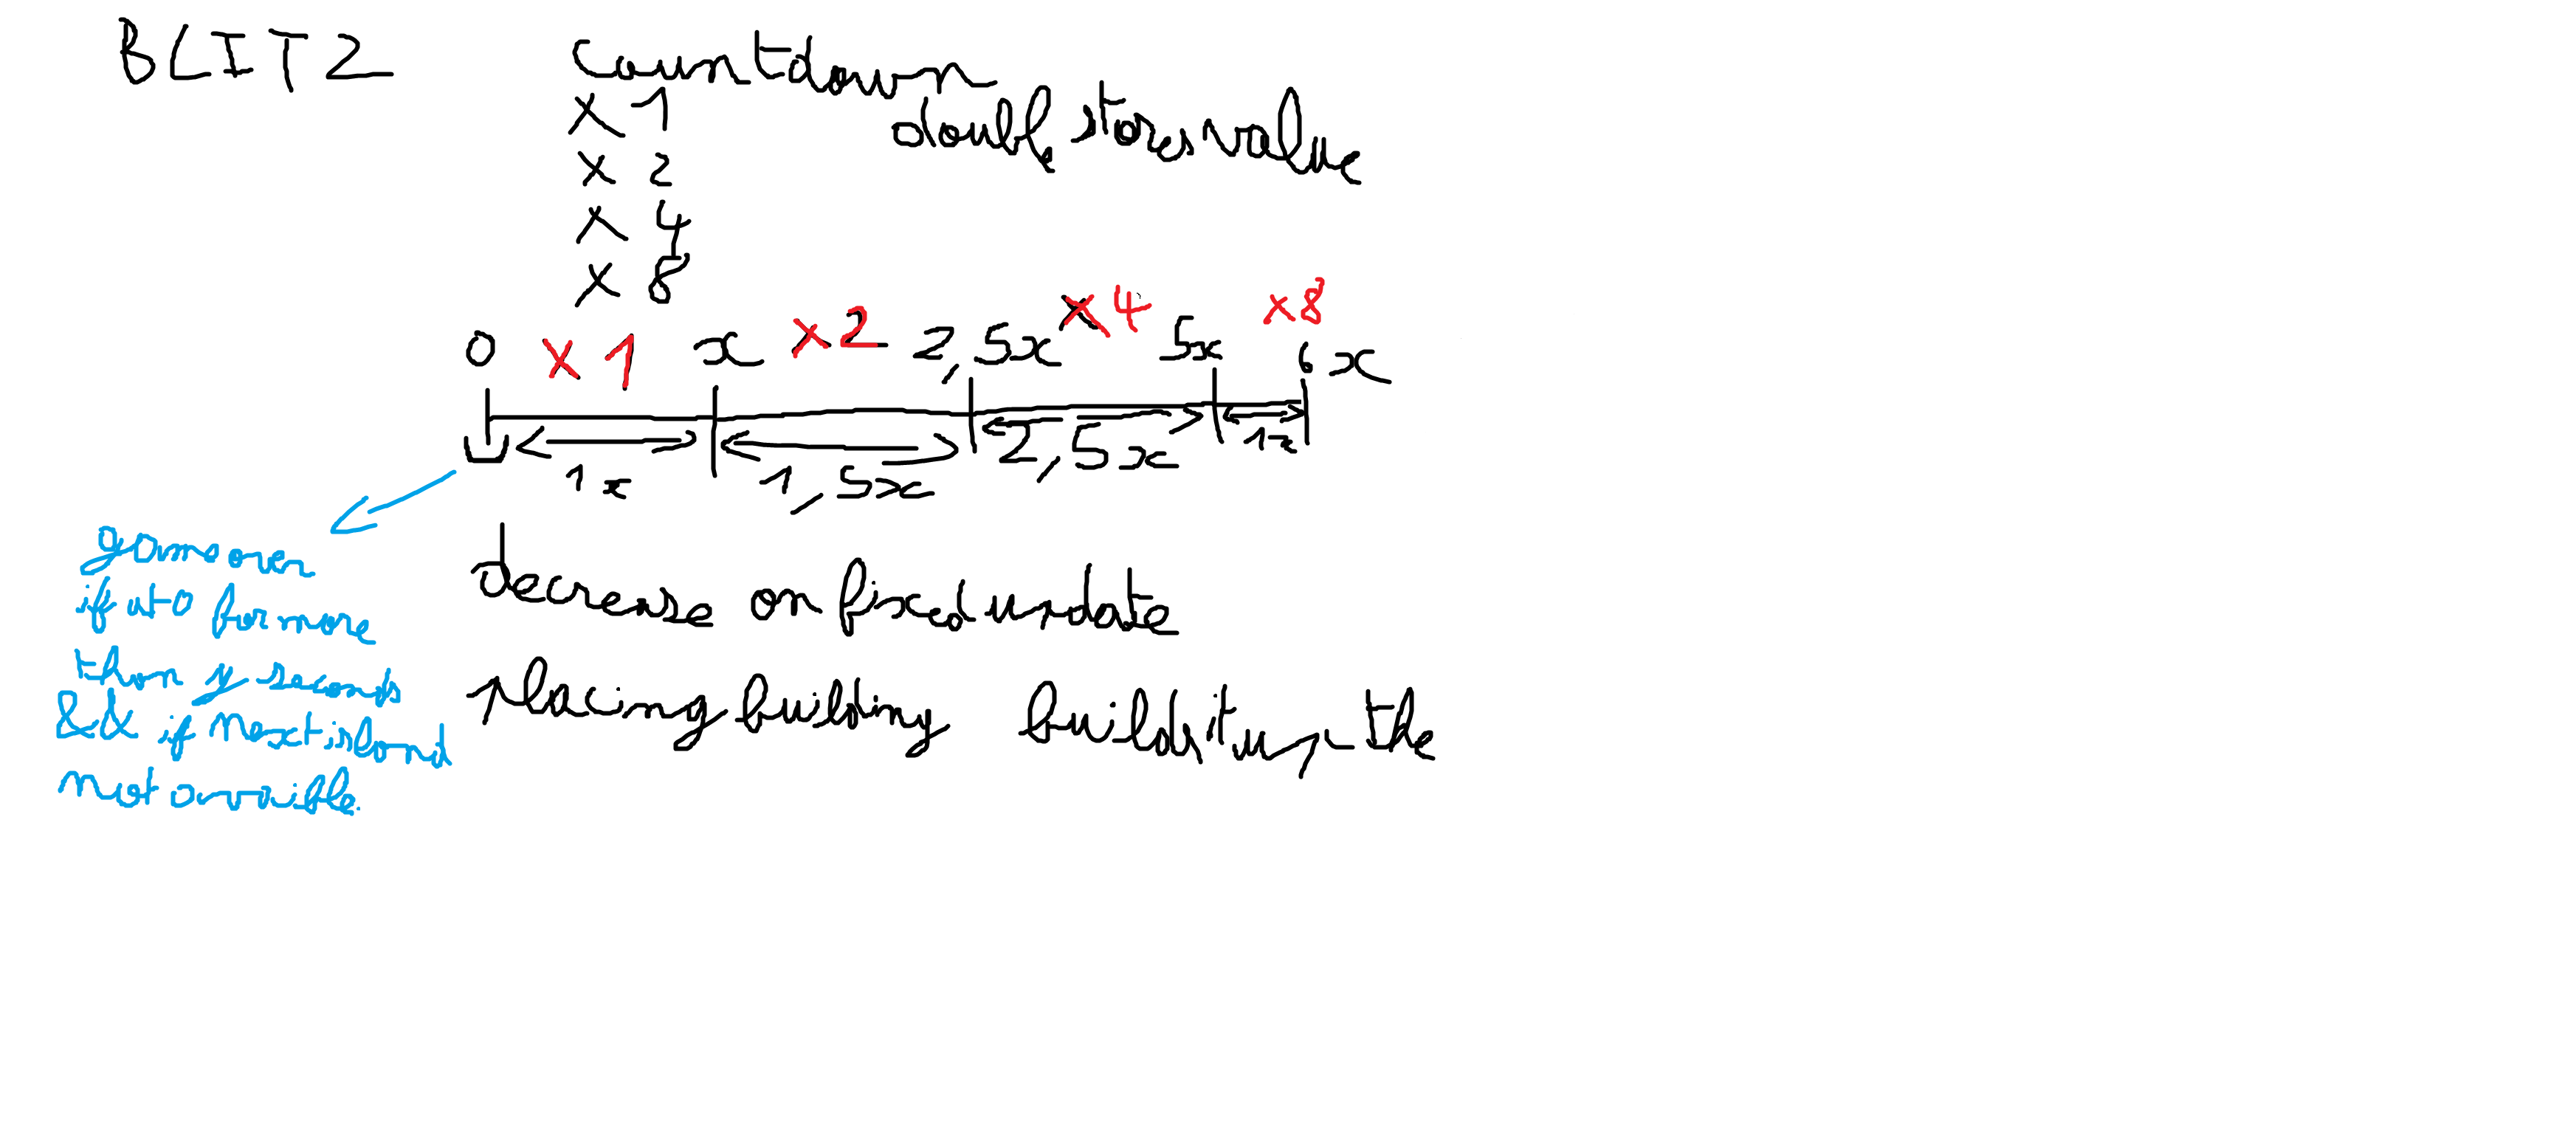 BLITZ
Countdown
double stores value
x 1
x 2
x 4
x 8
0 x 1 x x2 2,5x x4 5x x8 6x
1x 1,5x 2,5x 1x
gameover
if at 0 for more
than y seconds
&& if next island
not avaible.
decrease on fixed update
placing building builds it up the